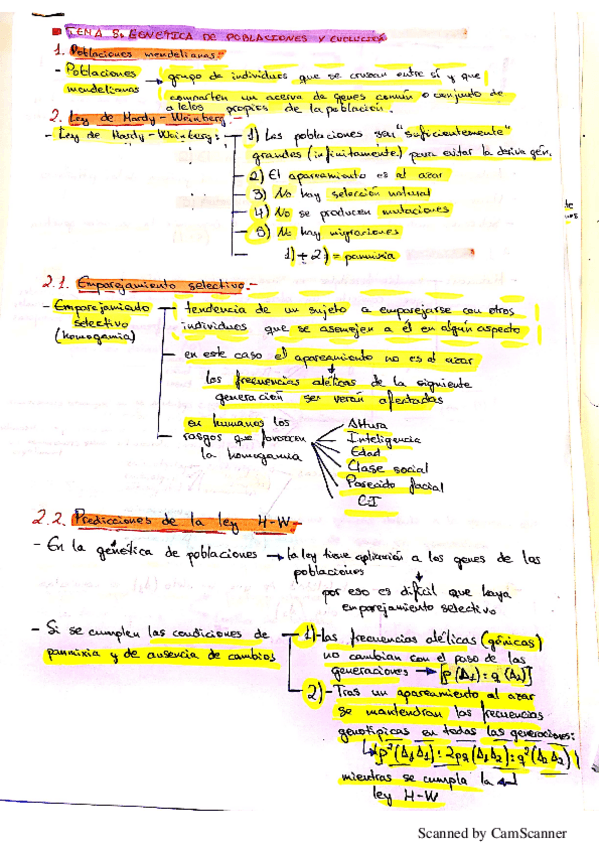 TEMA 5: GENÉTICA DE POBLACIONES Y EVOLUCIÓN
1. Poblaciones mendelianas:-
- Poblaciones mendelianas → grupo de individuos que se cruzan entre sí y que
comparten un acervo de genes común o conjunto de
alelos propios de la población.
2. Ley de Hardy-Weinberg:-
- Ley de Hardy-Weinberg: 1) Las poblaciones son "suficientemente"
grandes (infinitamente) para evitar la deriva gén.
2) El apareamiento es al azar
3) No hay selección natural
4) No se producen mutaciones
5) No hay migraciones
1) + 2) = panmixia
2.1. Emparejamiento selectivo:-
- Emparejamiento selectivo (homogamia)
tendencia de un sujeto a emparejarse con otros
individuos que se asemejen a él en algún aspecto
en este caso el apareamiento no es al azar
las frecuencias alélicas de la siguiente
generación se verán afectadas
en humanos los
rasgos que favorecen
la homogamia
Altura
Inteligencia
Edad
Clase social
Parecido facial
CI
2.2. Predicciones de la ley H-W-
- En la genética de poblaciones → la ley tiene aplicación a los genes de las
poblaciones
por eso es difícil que haya
emparejamiento selectivo
- Si se cumplen las condiciones de
panmixia y de ausencia de cambios
1)-las frecuencias alélicas (génicas)
no cambian con el paso de las
generaciones → [p(A₁):q(A₂)]
2)-Tras un apareamiento al azar
se mantendrán las frecuencias
genotípicas en todas las generaciones:
(p²(A₁A₁):2pq(A₁A₂):q²(A₂A₂))
mientras se cumpla la
ley H-W
Scanned by CamScanner